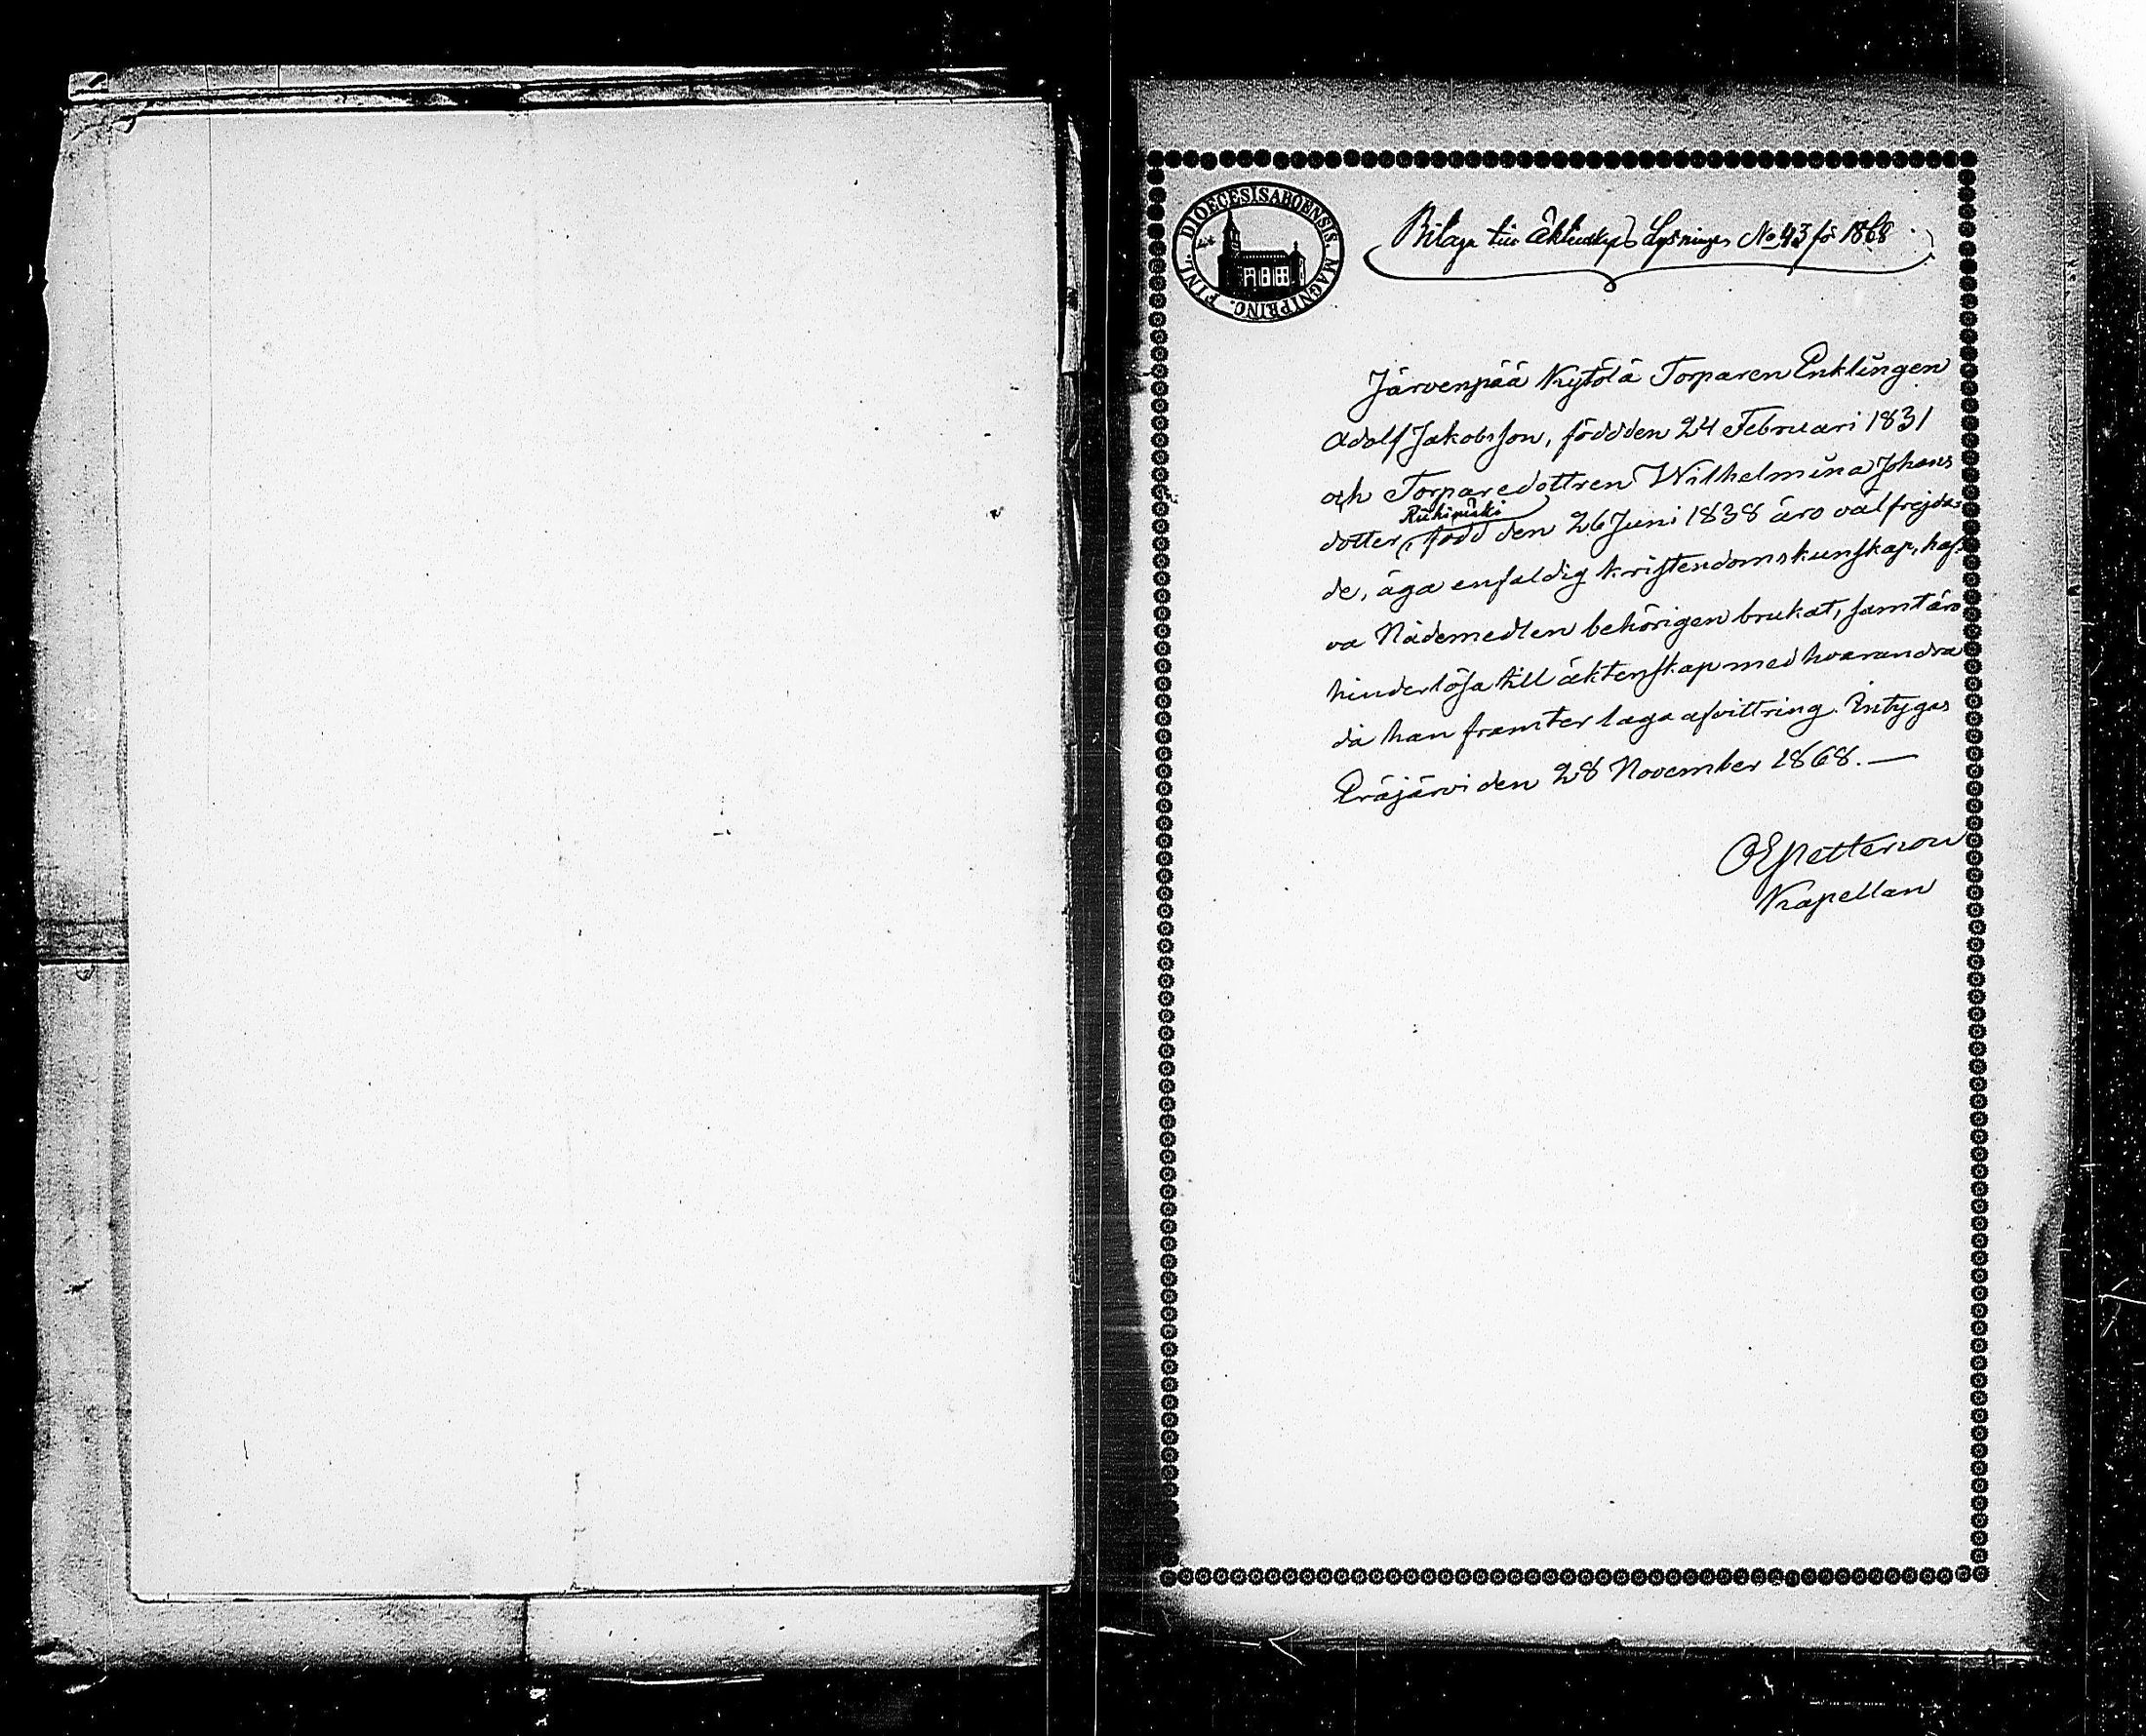 DIOECESIS ABOENSIS. MAGNI PRINC. FINL.
Bilaga till Äktenskaps Lysningen No 43 för 1868
Järvenpää Kytölä Torparen Enklingen
Adolf Jakobsson, född den 24 Februari 1831
och Torparedottren Wilhelmina Johans
dotter, född den 26 Juni 1838 äro välfrejda-
de, äga enfaldig kristendomskunskap, haf-
va Nådemedlen behörigen brukat, samt äro
hinderlösa till äktenskap med hvarandra
då han framter laga afvittring. Intygas
Eräjärvi den 28 November 1868.—
Petterson
Kapellan